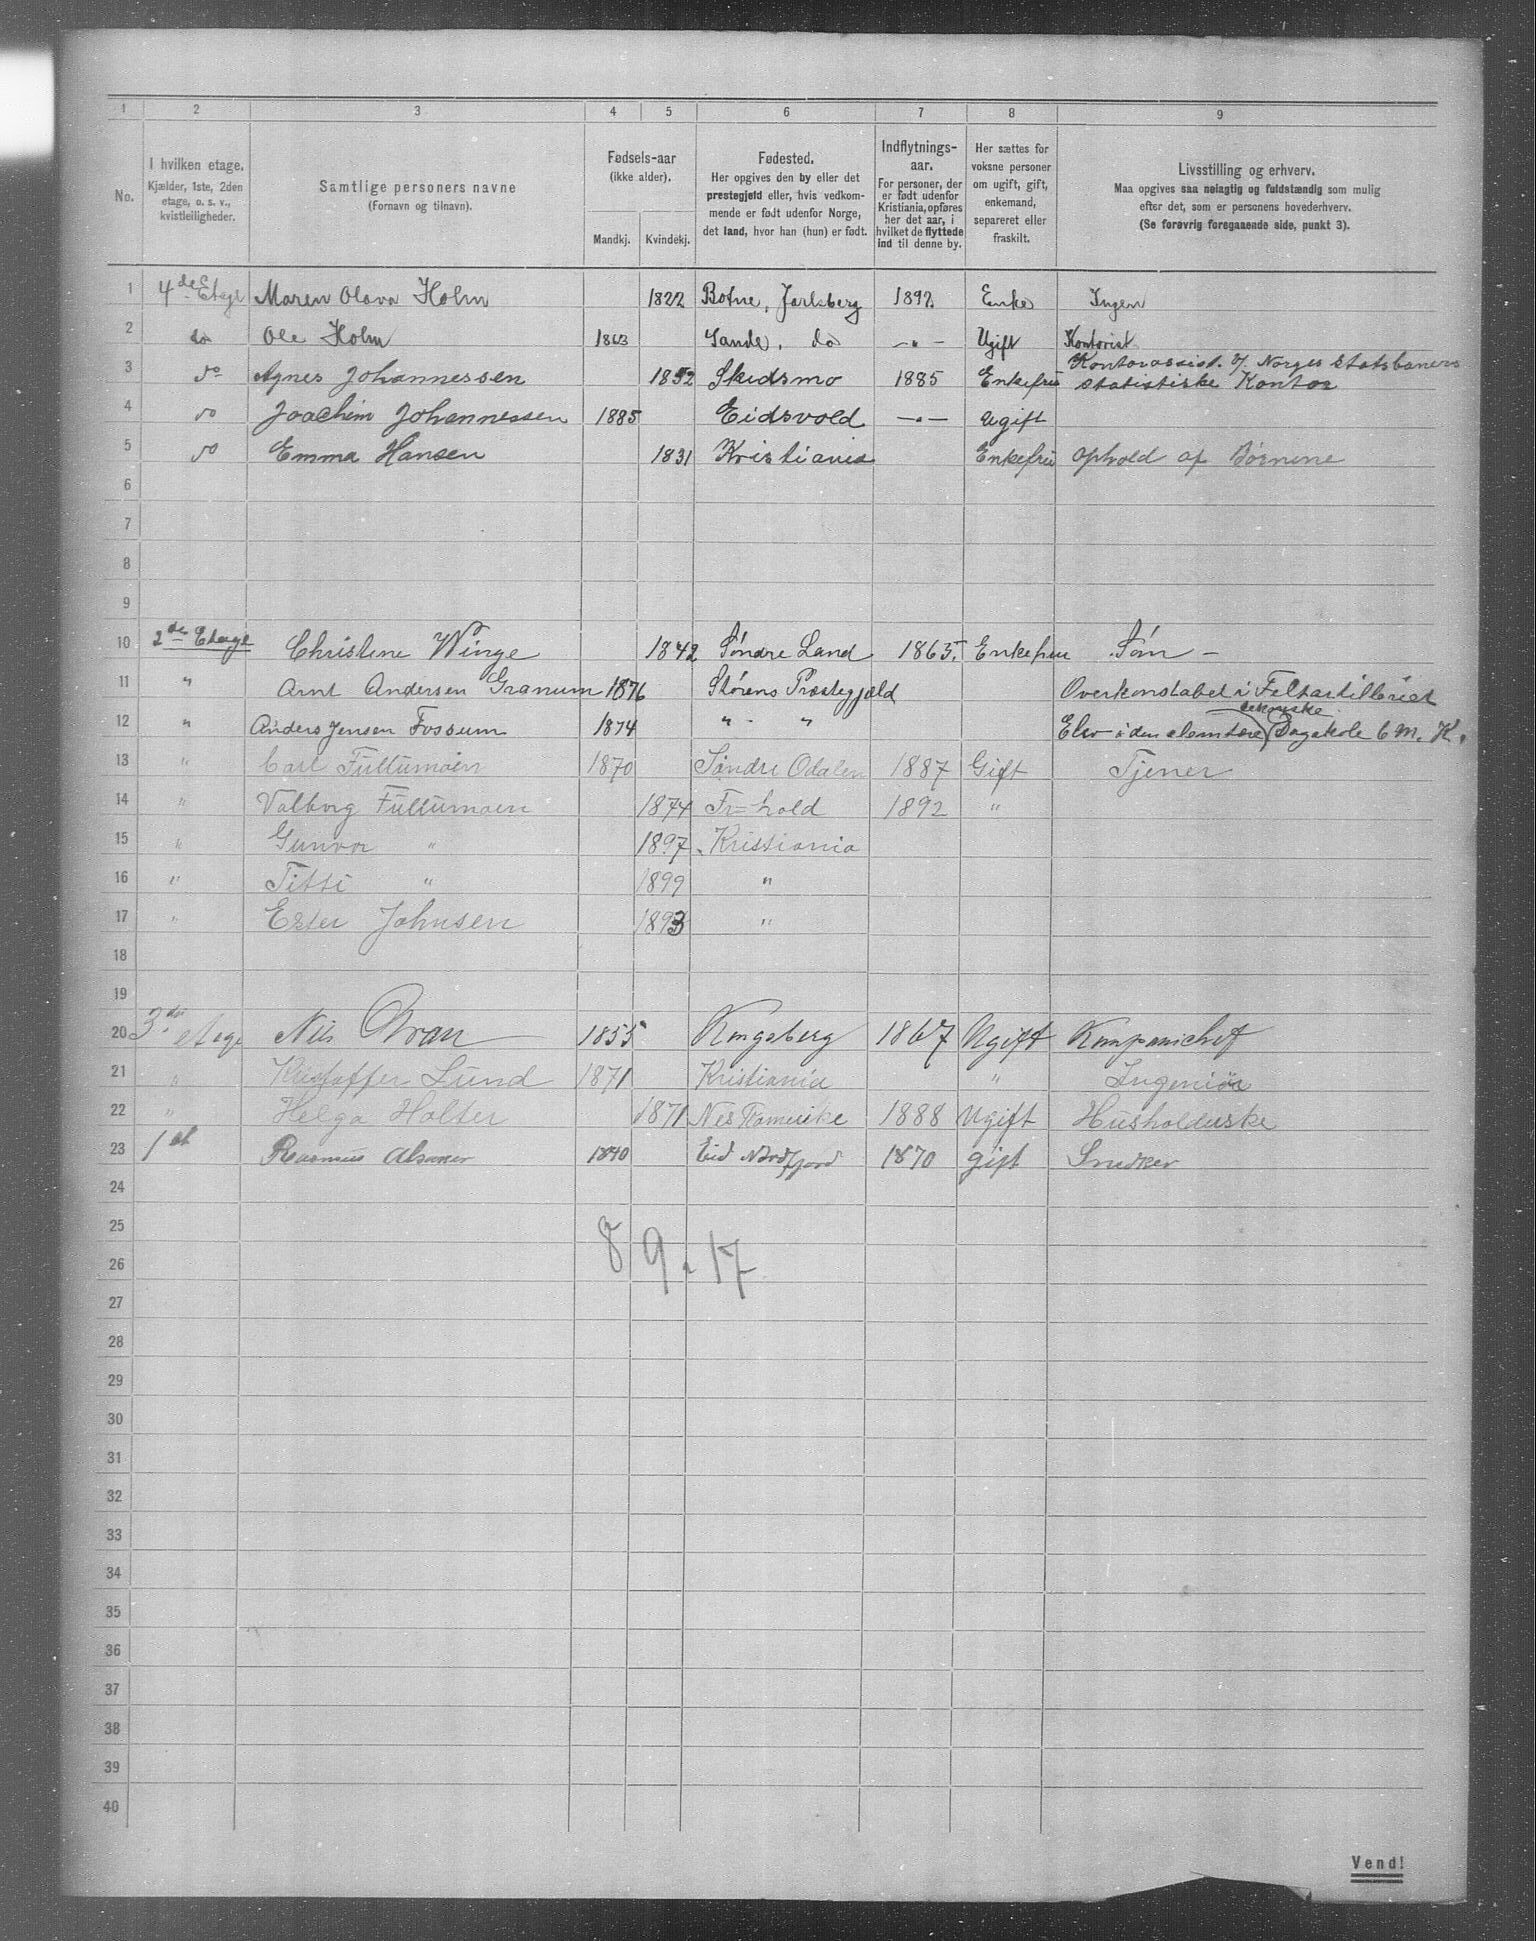 1 2 3 4 5 6 7 8 9
No.
I hvilken etage.
Kjælder, 1ste, 2den
etage, o. s. v.,
kvistleiligheder.
Samtlige personers navne
(Fornavn og tilnavn).
Fødsels-aar
(ikke alder).
Mandkj. Kvindekj.
Fødested.
Her opgives den by eller det
prestegjeld eller, hvis vedkom-
mende er født udenfor Norge,
det land, hvor han (hun) er født.
Indflytnings-
aar.
For personer, der
er født udenfor
Kristiania, opføres
her det aar, i
hvilket de flyttede
ind til denne by.
Her sættes for
voksne personer
om ugift, gift,
enkemand,
separeret eller
fraskilt.
Livsstilling og erhverv.
Maa opgives saa nøiagtig og fuldstændig som mulig
efter det, som er personens hovederhverv.
(Se forøvrig foregaaende side, punkt 3).
1 4de Etage Maren Olava Holm 1822 Botne, Jarlsberg 1892 Enke Ingen
2 do Ole Holm 1863 Sande, do —„— Ugift Kontorist
3 do Agnes Johannessen 1852 Skedsmo 1885 Enkefru Kontorassist. v/ Norges Statsbaners
statistiske Kontor
4 do Joachim Johannessen 1885 Eidsvold —„— Ugift
5 do Emma Hansen 1831 Kristiania Enkefru Ophold af Børnene
6
7
8
9
10 2den Etage Christene Winge 1842 Søndre Land 1865. Enkefru Søm —
11 " Arnt Andersen Granum 1876 Størens Præstegjæld Overkonstabel i Feltartilleriet
12 " Anders Jensen Fossum 1874 " - " Elev i den elemtære tekniske Dagskole 6 M. K.
13 " Carl Fullumoen 1870 Søndre Odalen 1887 Gift Tjener
14 " Valborg Fullumoen 1874 Fr=hald 1892 "
15 " Gunvor " 1897 Kristiania
16 " Titti " 1899 "
17 " Ester Johnsen 1893 "
18
19
20 3die etage Nils 1855 Kongsberg 1867 Ugift Kompanichef
21 " Kristoffer Lund 1871 Kristiania " Ingeniør
22 " Helga Holter 1871 Nes Romerike 1888 Ugift Husholderske
23 1st Rasmus Alsaker 1840 Eid Nordfjord 1870 gift Snedker
24
25
8 9 . 17
26
27
28
29
30
31
32
33
34
35
36
37
38
39
40
Vend!